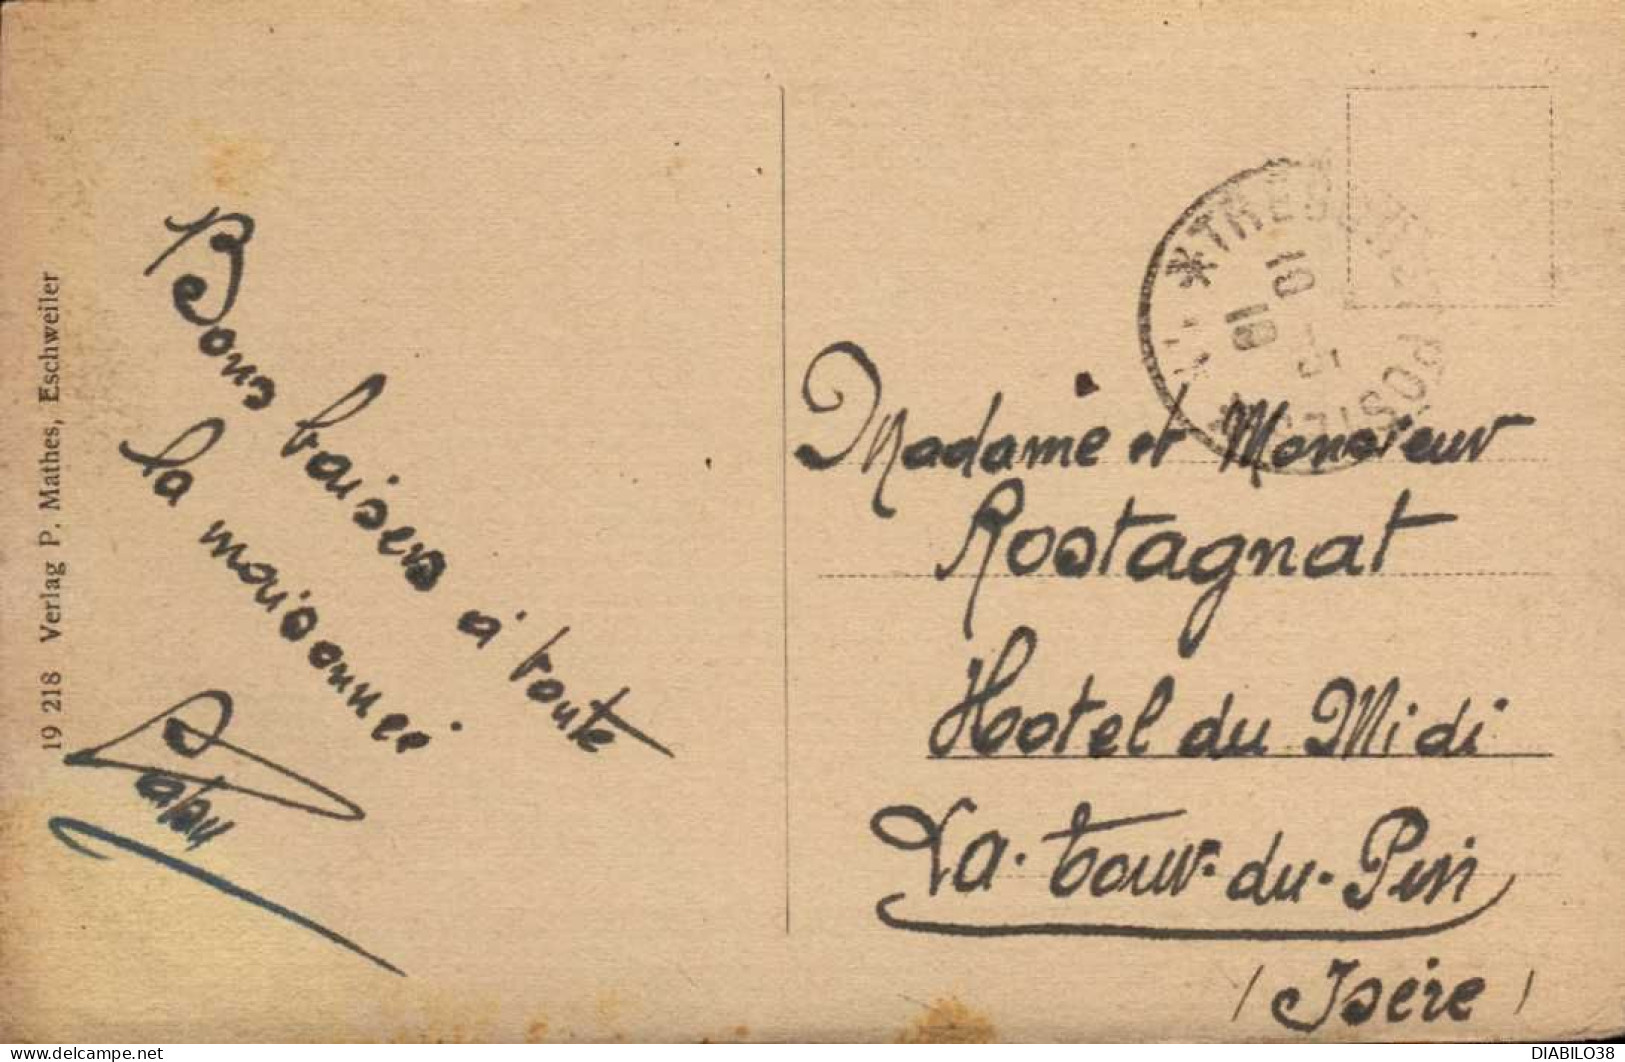 19 218 Verlag P. Mathes, Eschweiler
Bons baisers à toute
la maisonnée
*TRESOR ET POSTES*
Madame et Monsieur
Rostagnat
Hotel du Midi
La-Tour-du-Pin
(Isère)
DIABILO38